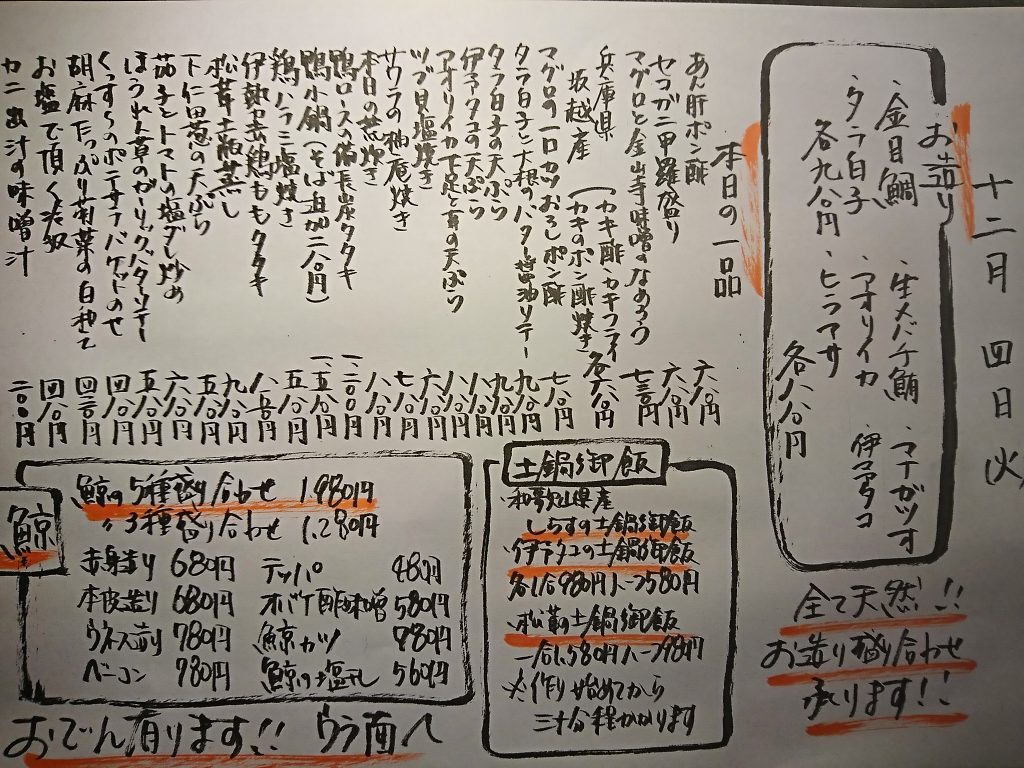 十二月 四日 火
お造り
・金目鯛 ・生メバチ鮪 ・マナガツオ
・タラ白子 ・アオリイカ ・伊マダコ
各九八〇円 ・ヒラマサ
各八八〇円
全て天然!!
お造り盛り合わせ
承ります!!
本日の一品
あん肝ポン酢 六八〇円
セコガニ甲羅盛り
マグロと金山寺味噌のなめろう 七三〇円
兵庫県
坂越産 (カキ酢・カキフライ
(カキのポン酢焼き 各六八〇円
マグロの一口カツおろしポン酢 七八〇円
タラ白子と大根のバター醤油ソテー 九八〇円
タラ白子の天ぷら 九八〇円
伊アダコの天ぷら 八八〇円
アオリイカ下足と青の天ぷら
ツブ貝塩焼き 六八〇円
サワラの柚庵焼き 七八〇円
本日の煮炊き 八八〇円
鴨ロースの備長炭タタキ 一、二〇〇円
鴨小鍋(そば追加二八〇円) 一、五八〇円
鶏ハラミ塩焼き 五八〇円
伊勢赤鶏ももタタキ 八五〇円
松茸土瓶蒸し 九八〇円
下仁田葱の天ぷら 五八〇円
茄子とトマトの塩ダレ炒め 六八〇円
ほうれん草のガーリックバターソテー 五八〇円
くっすらのポテサラバゲットのせ 四八〇円
胡麻たっぷり菊菜の白和え 四三〇円
お塩で頂く冷奴 四八〇円
カニ出汁の味噌汁 二〇〇円
土鍋御飯
・和歌山県産
しらすの土鍋御飯
・伊アダコの土鍋御飯
各1合980円ハーフ580円
・松茸の土鍋御飯
一合1,580円ハーフ980円
※作り始めてから
三十分程かかります
鯨
鯨の5種盛り合わせ 1,980円
〃3種盛り合わせ 1,280円
赤身造り 680円 テッパ 480円
本皮造り 680円 オバケ酢味噌 580円
ウネス造り 780円 鯨カツ 780円
ベーコン 980円 鯨の塩タレ 560円
おでん有ります!! ウラ面へ